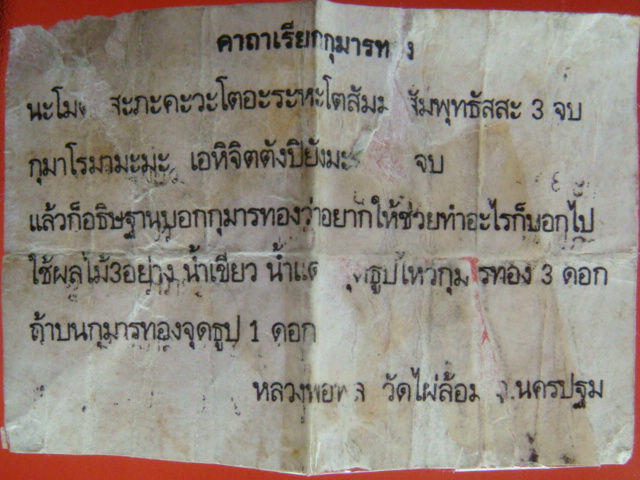 คาถาเรียกกุมารทอง
นะโม สะภะคะวะโตอะระหะโตสัมมาสัมพุทธัสสะ 3 จบ
กุมาโรมามะมะ เอหิจิตตังปิยังมะ จบ
แล้วก็อธิษฐานบอกกุมารทองว่าอยากให้ช่วยทำอะไรก็บอกไป
ใช้ผลไม้3อย่าง น้ำเขียว น้ำแดง จุดธูปไหว้กุมารทอง 3 ดอก
ถ้าบนกุมารทองจุดธูป 1 ดอก
หลวงพ่อ วัดไผ่ล้อม จ.นครปฐม